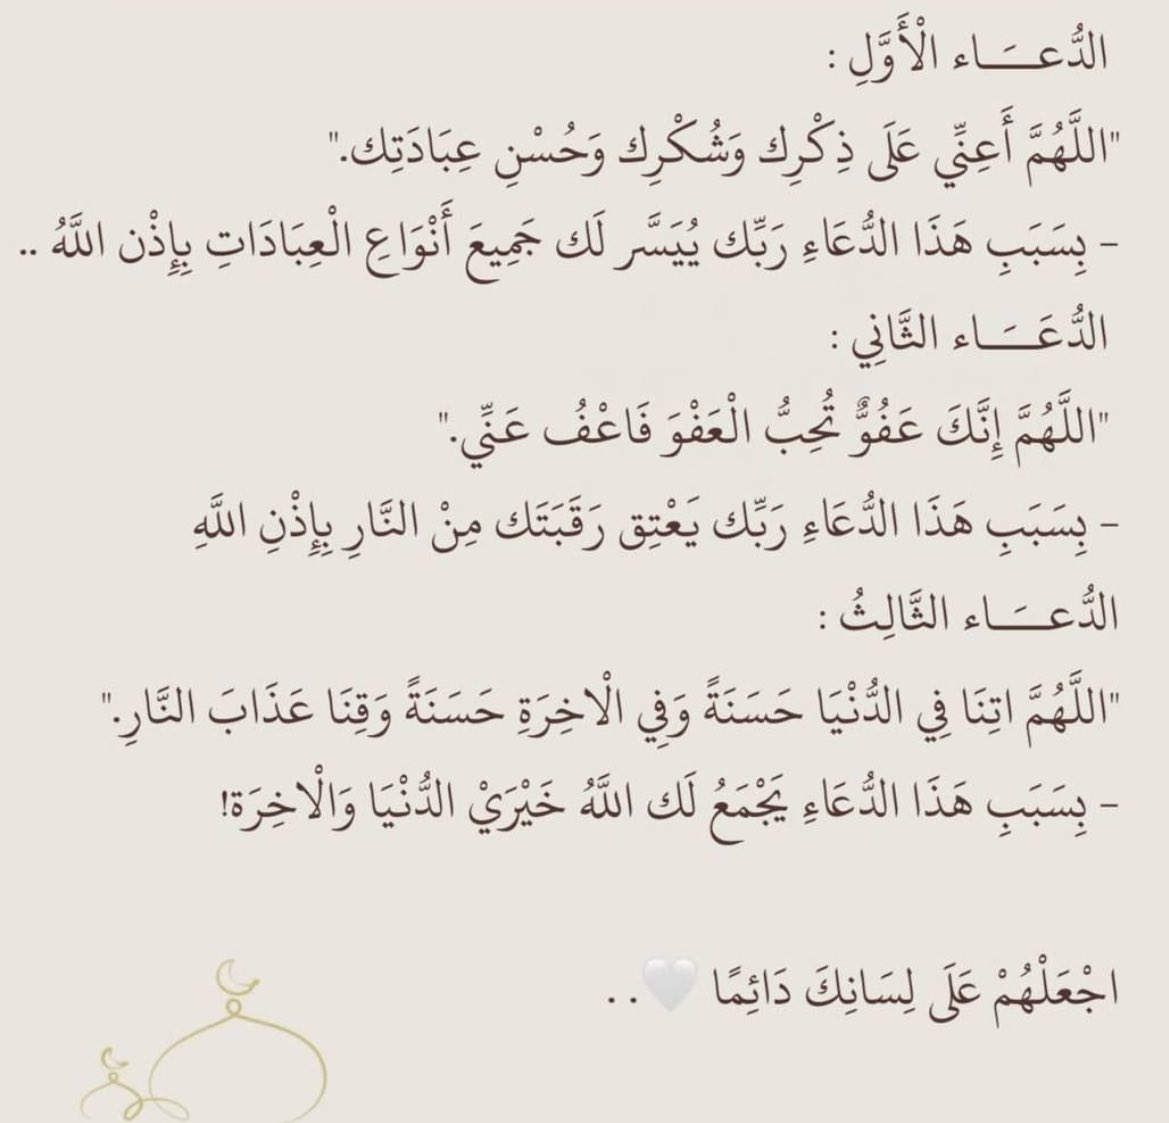 الدُّعـــَـاء الْأَوَّلِ :
"اللَّهُمَّ أَعِنِّي عَلَى ذِكْرِك وَشُكْرِك وَحُسْنِ عِبَادَتِك."
- بِسَبَبِ هَذَا الدُّعَاءِ رَبِّك يُيَسَّر لَك جَمِيعَ أَنْوَاعِ الْعِبَادَاتِ بِإِذْن اللَّهُ ..
الدُّعَـــَـاء الثَّانِي :
"اللَّهُمَّ إِنَّكَ عَفُوٌّ تُحِبُّ الْعَفْوَ فَاعْفُ عَنِّي."
- بِسَبَبِ هَذَا الدُّعَاءِ رَبِّك يَعْتِق رَقَبَتَك مِنْ النَّارِ بِإِذْنِ اللَّهِ
الدُّعـــَـاء الثَّالِثُ :
"اللَّهُمَّ اتِنَا فِي الدُّنْيَا حَسَنَةً وَفِي الْاخِرَةِ حَسَنَةً وَقِنَا عَذَابَ النَّارِ."
- بِسَبَبِ هَذَا الدُّعَاءِ يَجْمَعُ لَك اللَّهُ خَيْرَيْ الدُّنْيَا وَالْاخِرَة!
اجْعَلْهُمْ عَلَى لِسَانِكَ دَائِمًا 🤍. .